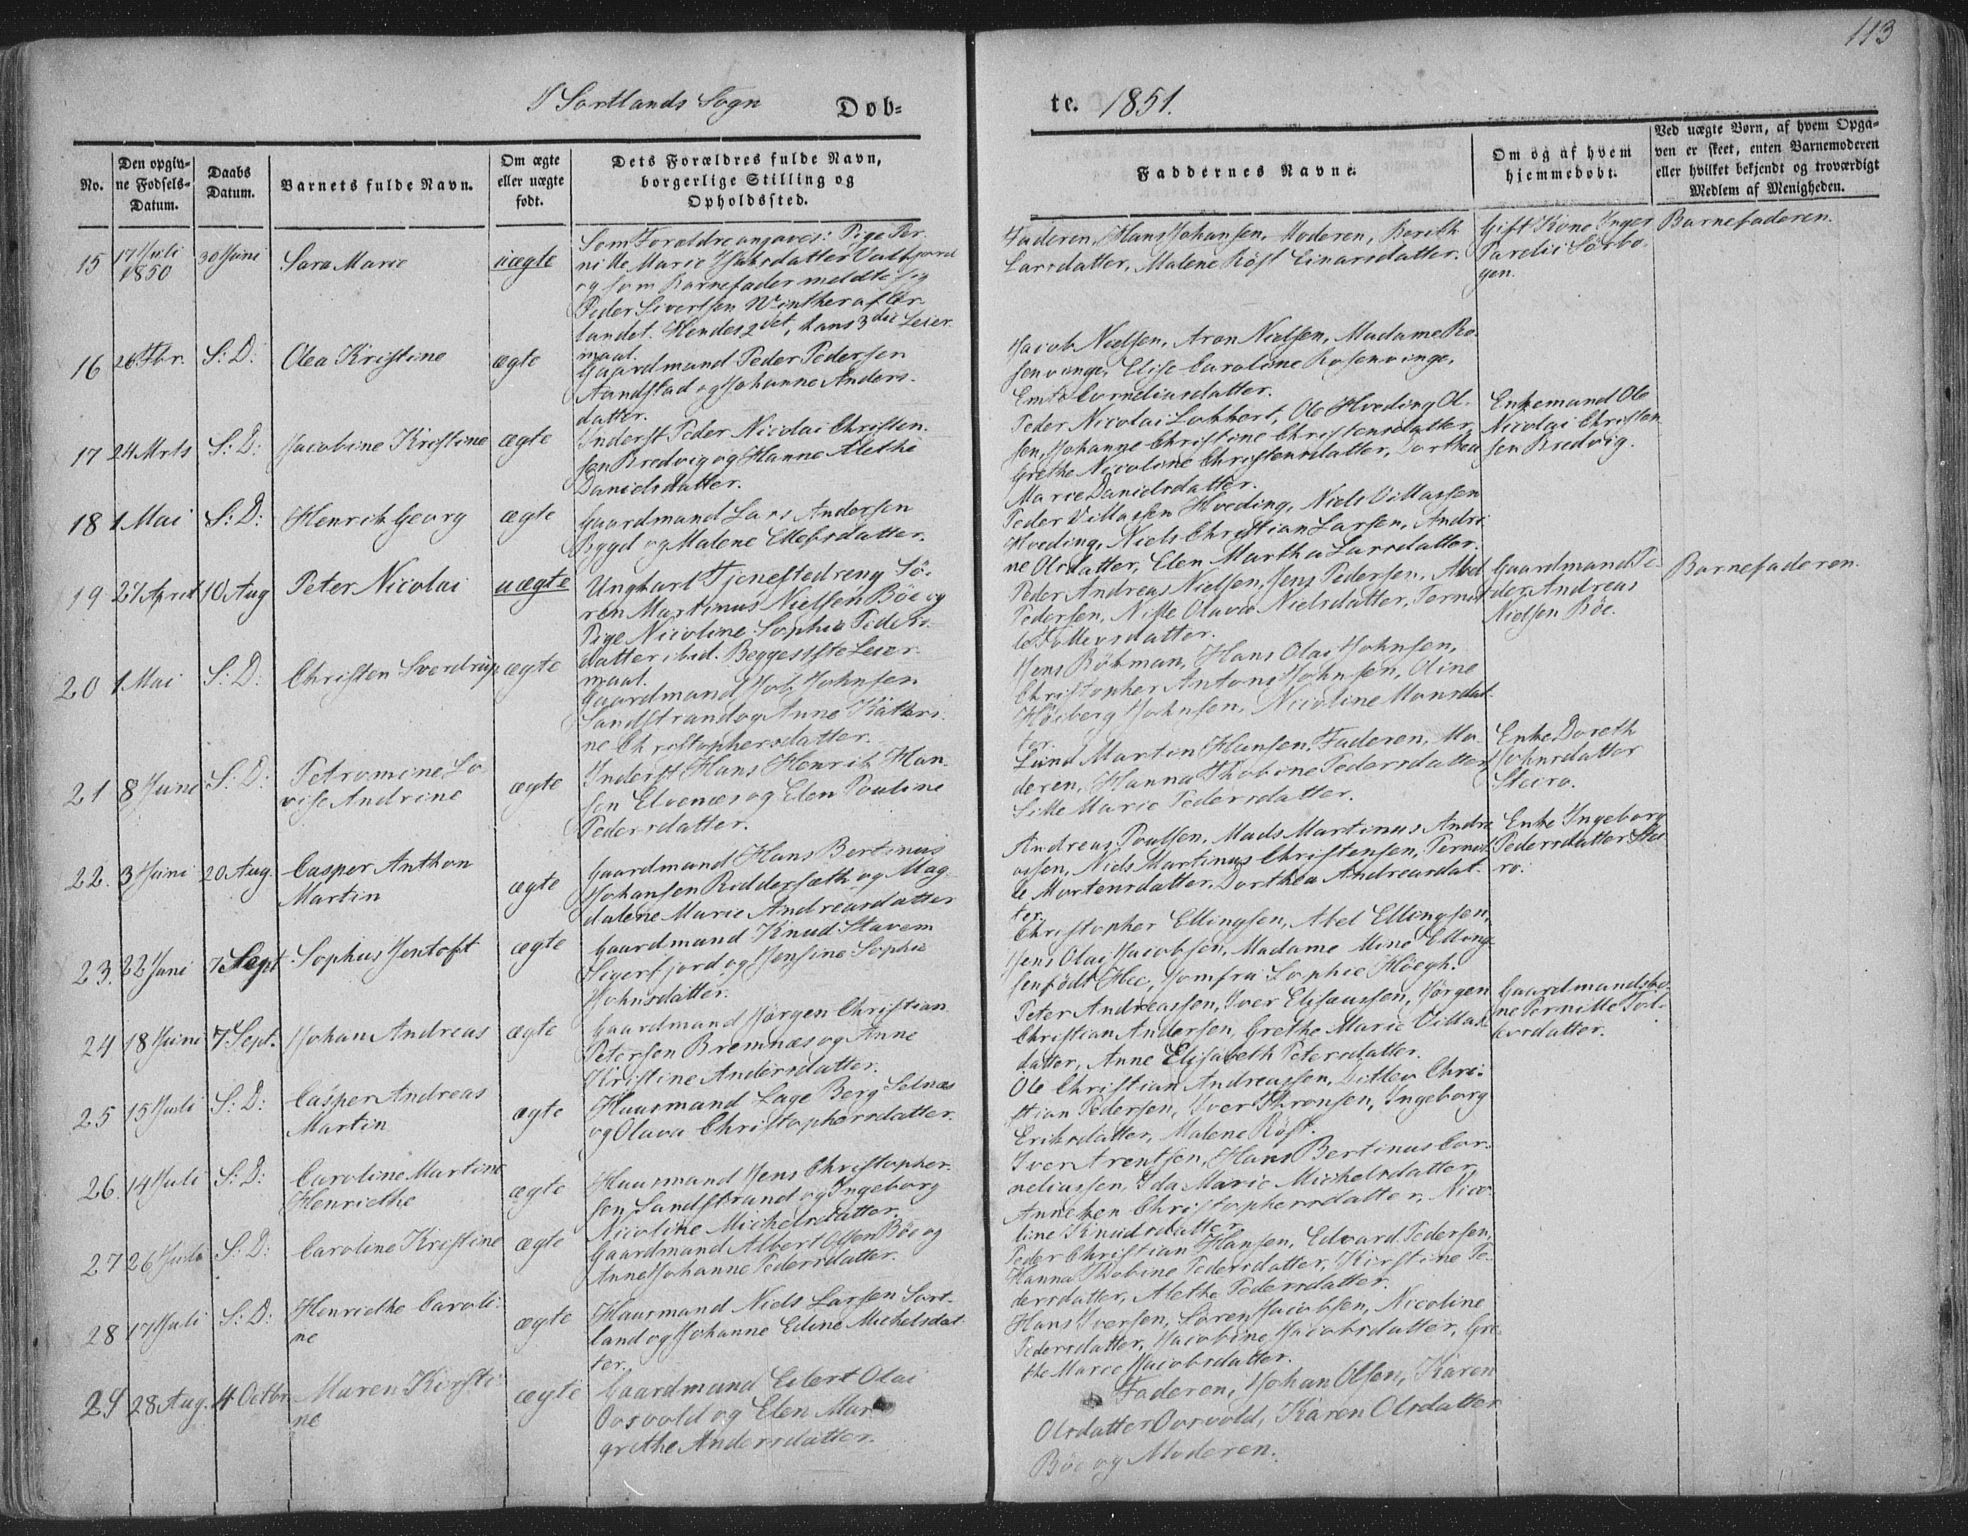 113
I Sortlands Sogn
Døb=
te. 1851.
No.
Den opgiv-
ne Fødsels-
Datum.
Daabs
Datum.
Barnets fulde Navn.
Om ægte
eller uægte
født.
Dets Forældres fulde Navn,
borgerlige Stilling og
Opholdssted.
Faddernes Navne.
Om og af hvem
hjemmedøbt.
Ved uægte Børn, af hvem Opga-
ven er skeet, enten Barnemoderen
eller hvilket bekjendt og troværdigt
Medlem af Menigheden.
15
17 Juli
1850
30 Juni
Sara Marie
uægte
Som Forældre angaves: Pige Per-
nille Marie Valfjord
og som Barnefader meldte sig
Peder Sivertsen Winther af
landet. Hendes 2det, hans 3die Leier-
maal.
Faderen, Hans Johansen, Moderen, Bereth
Larsdatter, Malene Røst Einarsdatter.
Gift Kone Inger
Parelii Sørbo-
gen.
Barnefaderen.
16
26 Fbr.
S: D:
Olea Kristine
ægte
Gaardmand Peder Pedersen
Aandstad og Johanne Anders-
datter.
Jacob Nielsen, Aron Nielsen, Madame Ro-
senvinge, Elise Caroline Rosenvinge,
Corneliusdatter.
17
24 Mrts
S: D:
Jacobine Kristine
ægte
Inderst Peder Nicolai Christen-
sen Bredvig og Hanne Alethe
Danielsdatter.
Peder Nicolai Lobbert, Ole Hveding Ol-
sen, Johanne Christine Christensdatter,
Grethe Nicoline Christensdatter, Dorthea
Marie Danielsdatter.
Enkemand Ole
Nicolai Christen-
sen Bredvig.
18
1 Mai
S: D:
Henrik Georg
ægte
Gaardmand Lars Andersen
Bygd og Malene Ellefsdatter.
Peder Villassen Hveding, Niels Villassen
Hveding, Niels Christian Larsen, Andri-
ne Olsdatter, Elen Martha Larsdatter.
19
27 April
10 Aug
Peter Nicolai
uægte
Ungkarl Tjenestedreng Sø-
ren Martinus Nielsen Böe og
Pige Nicoline Sophie Peders-
datter ibid. Begges 1ste Leier-
maal.
Peder Andreas Nielsen, Jens Pedersen, Abel
Pedersen, Olava Nielsdatter, Pernil-
le Tollevsdatter.
Gaardmand Pe-
der Andreas
Nielsen Böe.
Barnefaderen.
20
1 Mai
S: D:
Christen Sverdrup
ægte
Gaardmand Job Johnsen
Sandstrand og Anne Kathri-
ne Christophersdatter.
Jens Bökman, Hans Olai Johnsen,
Christopher Antoni Johnsen, Oline
Höiberg Johnsen, Nicoline Monsdat-
ter.
21
8 Juni
S: D:
Petromine Lo-
vise Andrine
ægte
Inderst Hans Henrik Han-
sen Elvenæs og Elen Pauline
Pedersdatter.
Lund Martin Hansen, Faderen, Mo-
deren, Hanna Thobine Pedersdatter,
Sille Marie Pedersdatter.
Enke Doreth
Johnsdatter
Steiro.
22.
3 Juni
20 Aug.
Casper Anthon
Martin
ægte
Gaardmand Hans Bertinus
Johansen Riddersæth og Mag-
dalene Marie Andreasdatter
Andreas Poulsen, Mads Martinus Andre-
assen, Niels Martinus Christensen, Pernil-
le Mortensdatter, Dorthea Andreasdat-
ter.
Enke Ingeborg
Pedersdatter Stei-
ro.
23.
22 Juni
7 Sept
Sophus Jentoft
ægte
Gaardmand Knud Stavem
Sigerfjord og Jensine Sophie
Johnsdatter.
Christopher Ellingsen, Abel Ellingsen,
Jens Olai Jacobsen, Madame Mine Elling-
sen födt Hee, Jomfru Sophie Höegh.
24
18 Juni
7 Sept.
Johan Andreas
ægte
Gaardmand Jörgen Christian
Petersen Bremnæs og Anne
Kristine Andersdatter.
Peter Andreassen, Iver Elisæussen, Jörgen
Christian Andersen, Grethe Marie Villas-
datter, Anne Elisabeth Petersdatter.
Gaardmandsko-
ne Pernille Tol-
levsdatter.
25
15 Juli
S: D:
Casper Andreas
Martin
ægte
Huusmand Lage Berg Selnæs
og Olava Christophersdatter.
Ole Christian Andreassen, Ditlev Chri-
stian Pedersen, Iver Thronsen, Ingeborg
Eriksdatter, Malene Röst.
26.
14 Juli
S: D:
Caroline Martine
Henriethe
ægte
Huusmand Jens Christopher-
sen Sandstrand og Ingeborg
Nicoline Michelsdatter.
Iver Arentsen, Hans Bertinus Cor-
neliussen, Ida Marie Michelsdatter,
Anneken Christophersdatter, Nico-
line Knudsdatter
27
26 Juli
S: D:
Caroline Kristine
ægte
Gaardmand Albert Olsen Böe og
Anne Johanne Pedersdatter.
Peder Christian Hansen, Edvard Pedersen,
Hanna Thobine Pedersdatter, Kirstine Pe-
dersdatter, Alethe Pedersdatter.
28
17 Juli
S: D:
Henriethe Caroli-
ne
ægte
Huusmand Niels Larsen Sort-
land og Johanne Edine Michelsdat-
ter.
Hans Iversen, Sören Jacobsen, Nicoline
Pedersdatter, Jacobine Jacobsdatter, Gre-
the Marie Jacobsdatter.
29
28 Aug.
4 Octbr
Maren Kirsti-
ne
ægte
Gaardmand Eilert Olai
Osvold og Elen Mar-
grethe Andersdatter.
Faderen, Johan Olsen, Karen
Olsdatter Osvold, Karen Olsdatter
Böe og Moderen.